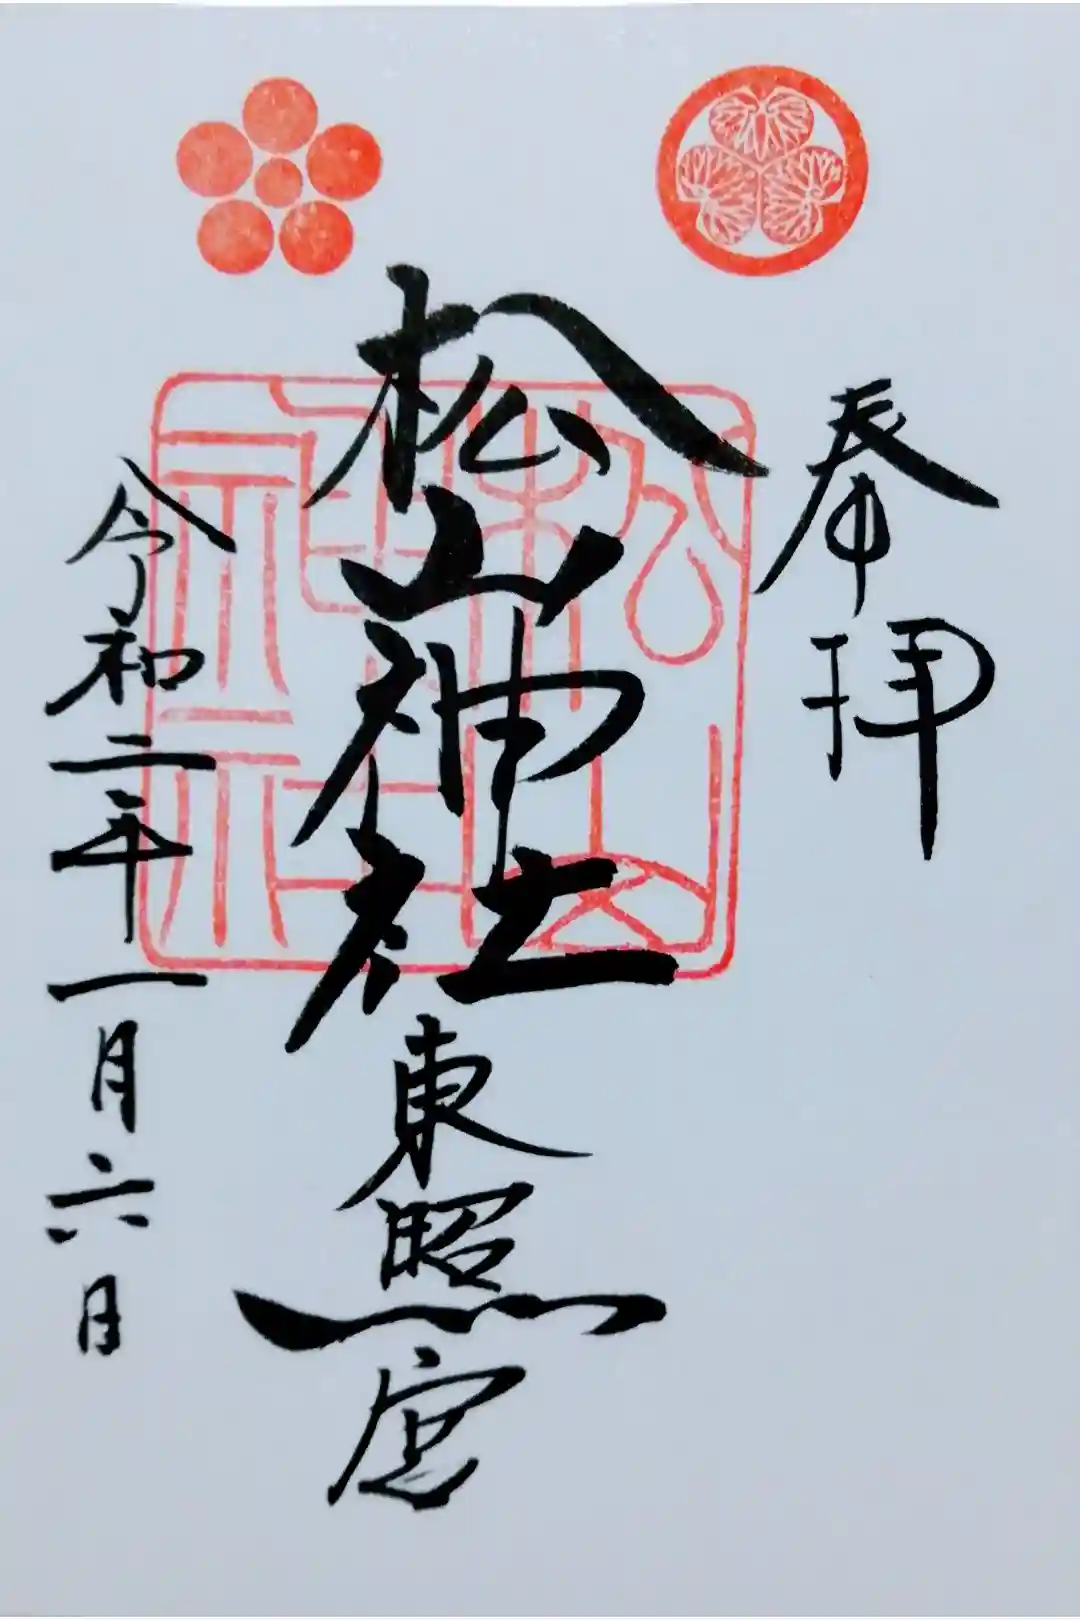 奉拝
松山神社東照宮
令和二年十一月六日
松山神社